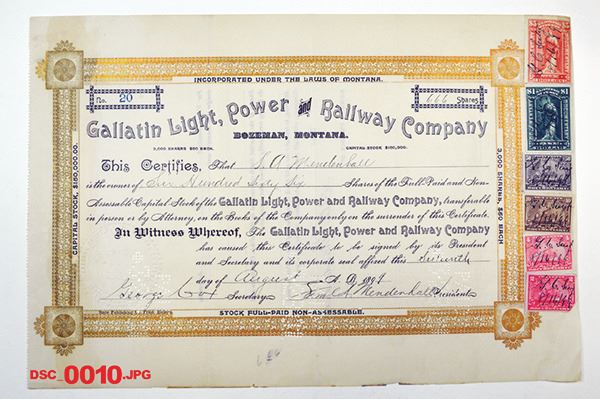 INCORPORATED UNDER THE LAWS OF MONTANA.
No. 20
666 Shares
Gallatin Light, Power and Railway Company
BOZEMAN, MONTANA.
3,000 SHARES $50 EACH. CAPITAL STOCK $150,000.
This Certifies, That S. A. Mendenhall
is the owner of Six Hundred Sixty Six Shares of the Full Paid and Non-
Assessable Capital Stock of the Gallatin Light, Power and Railway Company, transferable
in person or by Attorney, on the Books of the Company only on the surrender of this Certificate.
In Witness Whereof, The Gallatin Light, Power and Railway Company,
has caused this Certificate to be signed by its President
and Secretary and its corporate seal affixed this
day of August A. D. 189
George Cox Secretary. Mendenhall President.
STOCK FULL-PAID NON-ASSESSABLE.
CAPITAL STOCK, $150,000.00.
3,000 SHARES, $50 EACH
$1 $1
DSC_0010.JPG